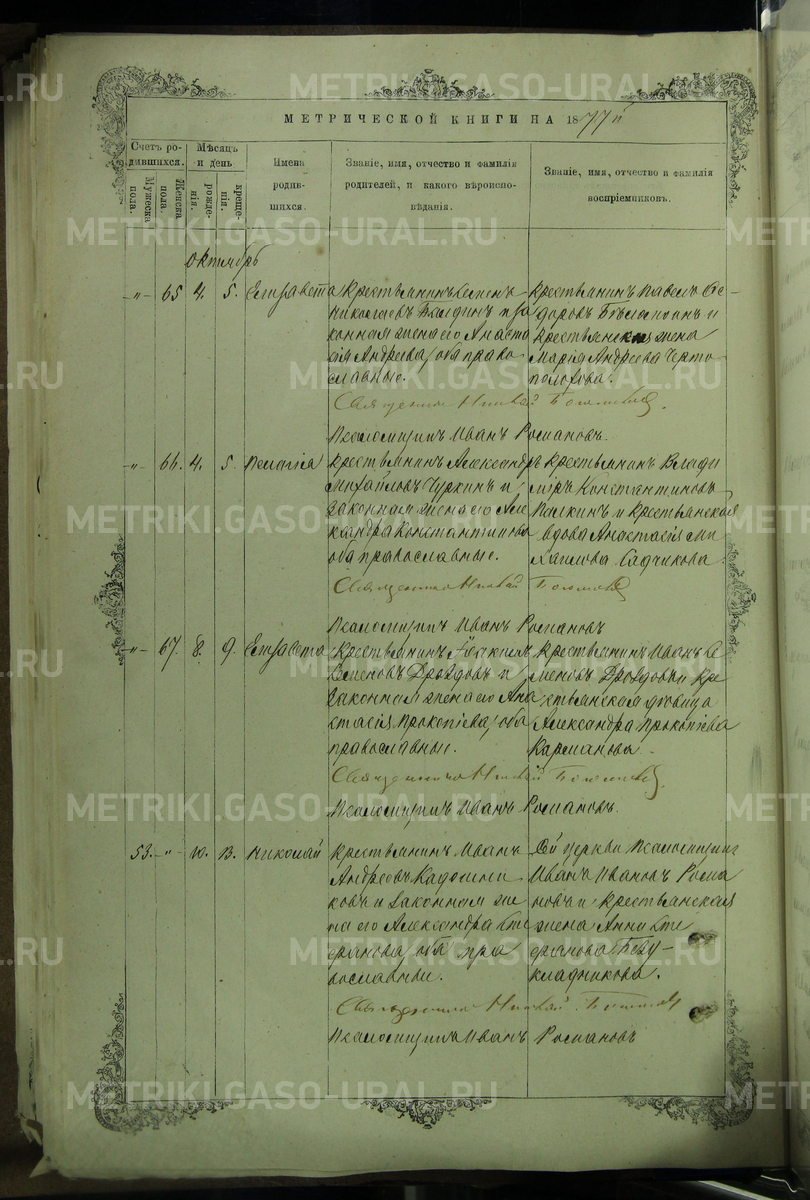 МЕТРИЧЕСКОЙ КНИГИ НА 1877 й
Счетъ родившихся.
Мужеска пола.
Женска пола.
Мѣсяцъ и день
рожденія.
крещенія.
Имена родившихся.
Званіе, имя, отчество и фамилія родителей, и какого вѣроисповѣданія.
Званіе, имя, отчество и фамилія воспріемниковъ.
Октябрь
-"- 65 4. 5. Елизавета
Крестьянинъ Семенъ
Николаевъ и за
конная жена его Анаста
сія Андреева, оба право
славные.
Крестьянинъ Павелъ Ѳе-
доровъ и
крестьянская жена
Марія Андреева Черто
полохова.
Священникъ Николай
Псаломщикъ Иванъ Романовъ.
-"- 66. 4. 5. Пелагія
Крестьянинъ Александръ
Михайловъ Чуркинъ и
законная жена его Але
ксандра Константинова
оба православные.
Крестьянинъ Влади
міръ Константиновъ
Палкинъ и крестьянская
вдова Анастасія Ми
хаилова Садчикова.
Священникъ Николай
Псаломщикъ Иванъ Романовъ
-"- 67. 8. 9. Елизавета
Крестьянинъ
Семеновъ Дроздовъ и
законная жена его Ана
стасія Прокопіева, оба
православные.
Крестьянинъ Иванъ Се
меновъ Дроздовъ и кре
стьянская дѣвица
Александра Прокопіева
Карманова.
Священникъ Николай
Псаломщикъ Иванъ Романовъ.
53. -"- 10. 13. Николай
Крестьянинъ Иванъ
Андреевъ Кадошни
ковъ и законная же
на его Александра Сте
фанова, оба пра
вославные.
Сей церкви Псаломщикъ
Иванъ Ивановъ Рома
новъ и крестьянская
жена Анна Сте
фанова Безу-
кладникова.
Священникъ Николай
Псаломщикъ Иванъ Романовъ
METRIKI.GASO-URAL.RU